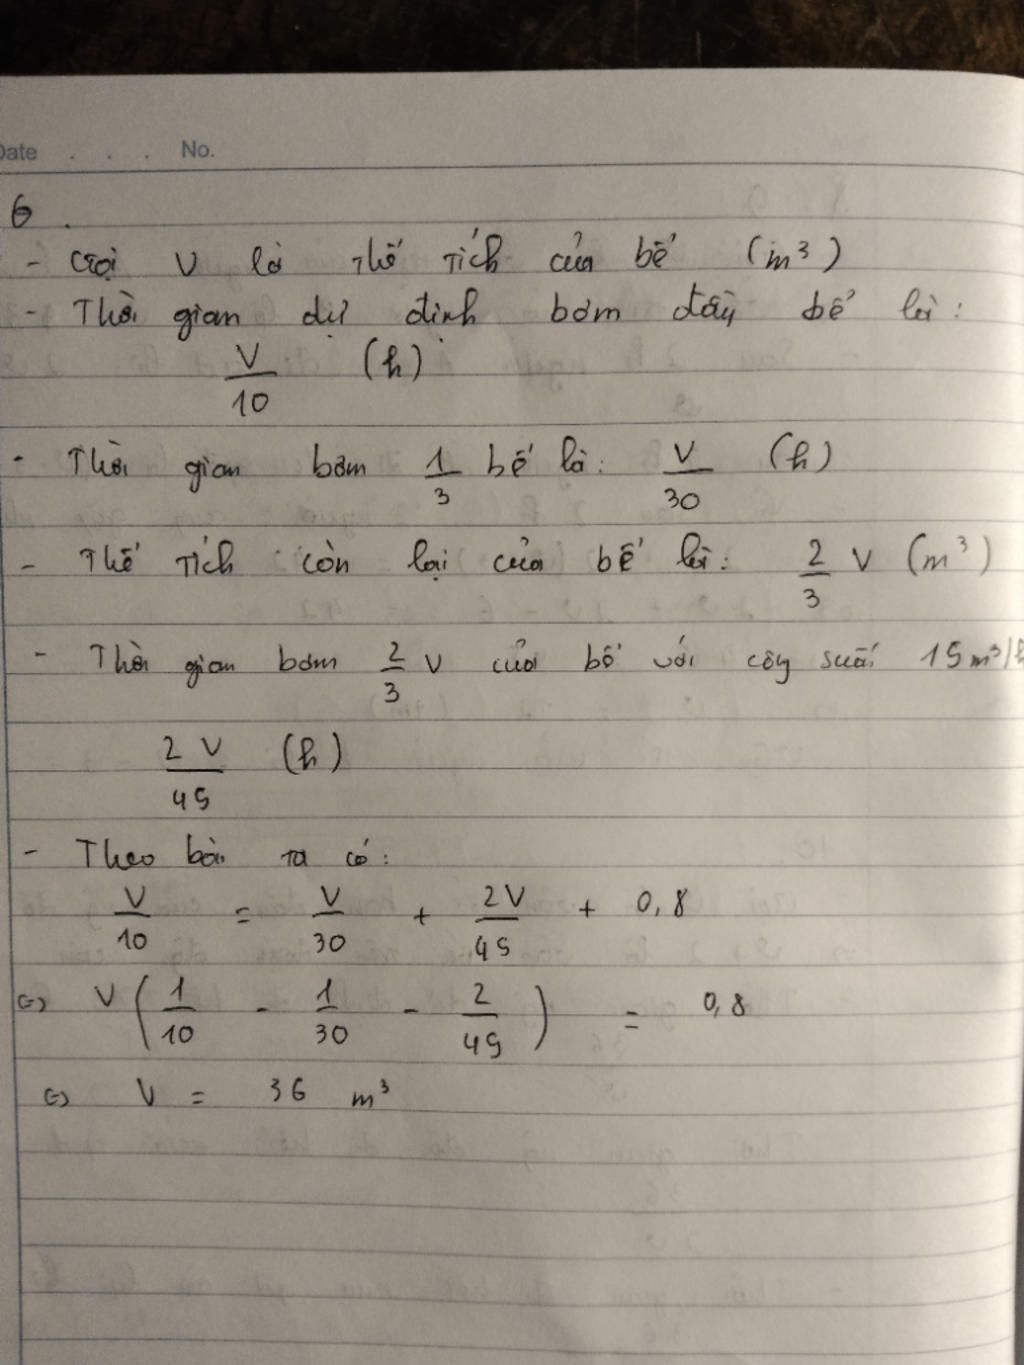 Date . . . No.
6.
- Gọi V là thể tích của bể (m³)
- Thời gian dự định bơm đầy bể là:
V/10 (h)
- Thời gian bơm 1/3 bể là: V/30 (h)
- Thể tích còn lại của bể là: 2/3 V (m³)
- Thời gian bơm 2/3 V của bể với công suất 15m³/h
2V/45 (h)
- Theo bài ra có:
V/10 = V/30 + 2V/45 + 0,8
<=> V(1/10 - 1/30 - 2/45) = 0,8
<=> V = 36 m³